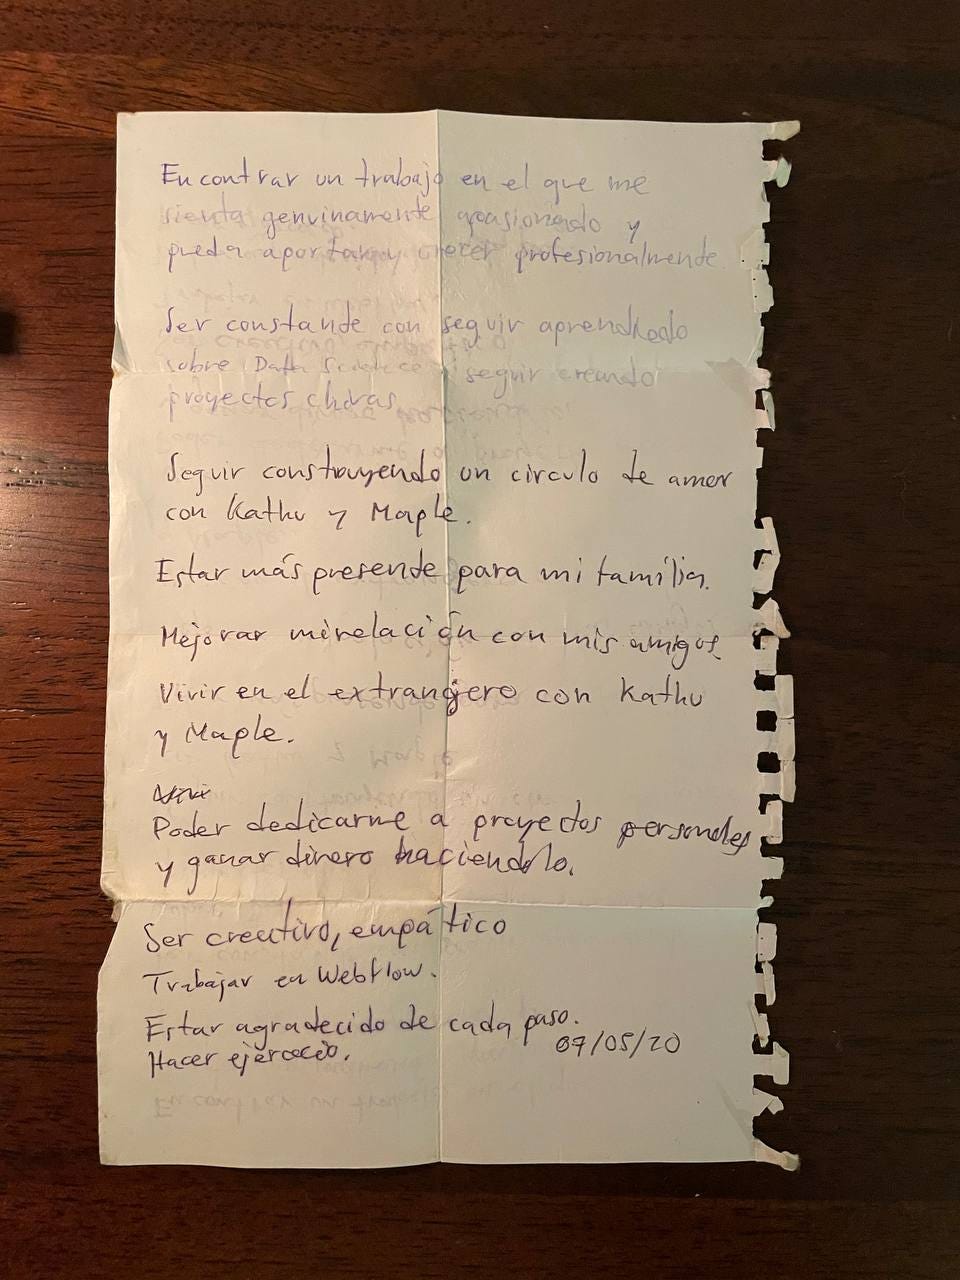 Encontrar un trabajo en el que me
sienta genuinamente apasionado y
pueda aportar y crecer profesionalmente
Ser constante con seguir aprendiendo
sobre Data Science y seguir creando
proyectos chéras
Seguir construyendo un circulo de amor
con Kathu y Maple.
Estar más presente para mi família.
Mejorar mi relación con mis amigos
Vivir en el extrangjero con Kathu
y Maple.
Poder dedicarme a proyectos personales
y ganar dinero haciendolo.
Ser creativo, empático
Trabajar en Webflow.
Estar agradecido de cada paso.
07/05/20
Hacer ejercecio.